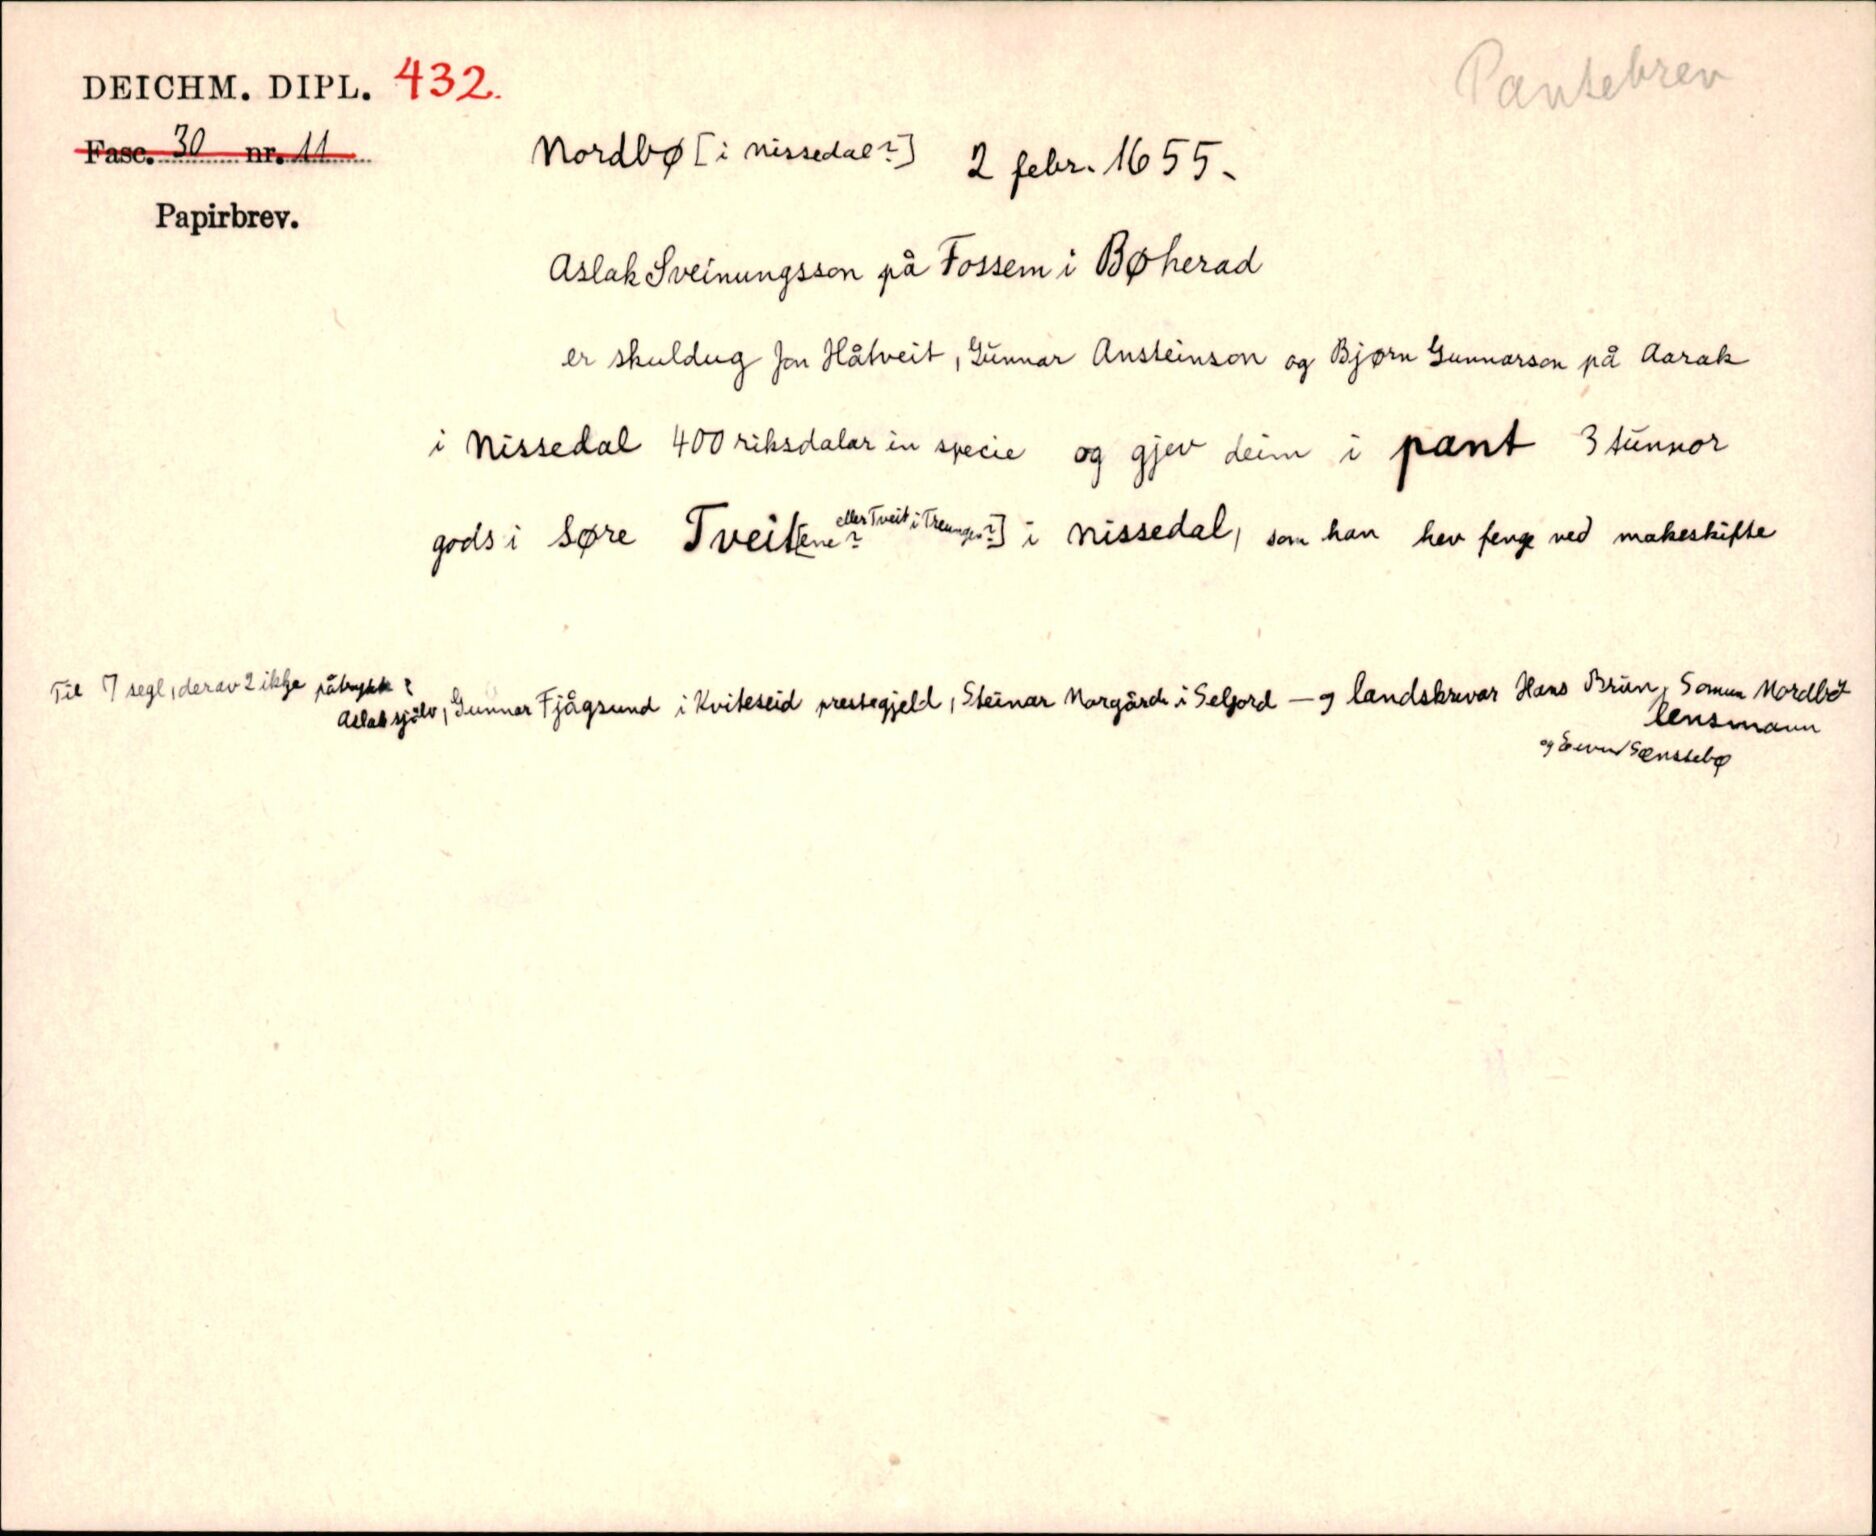 DEICHM. DIPL. 432.
Pantebrev
Fasc. 30 nr. 11
Nordbø [i Nissedal?] 2 febr. 1655.
Papirbrev.
Aslak Sveinungsson på Fossem i Bøherad
er skuldug Jon Håtveit, Gunnar Ansteinson og Bjørn Gunnarson på Aarak
i Nissedal 400 riksdalar in specie og gjev deim i pant 3 tunnor
gods i Søre Tveit[ene? eller Tveit i Treungen?] i Nissedal, som han hev fenge ved makeskifte
Til 7 segl, derav 2 ikkje påtrykk:
Aslak sjølv, Gunnar Fjågsund i Kviteseid prestegjeld, Steinar Norgarde i Seljord – og landskrivar Hans Brun, Nordbø
lensmann
og Sønstebø